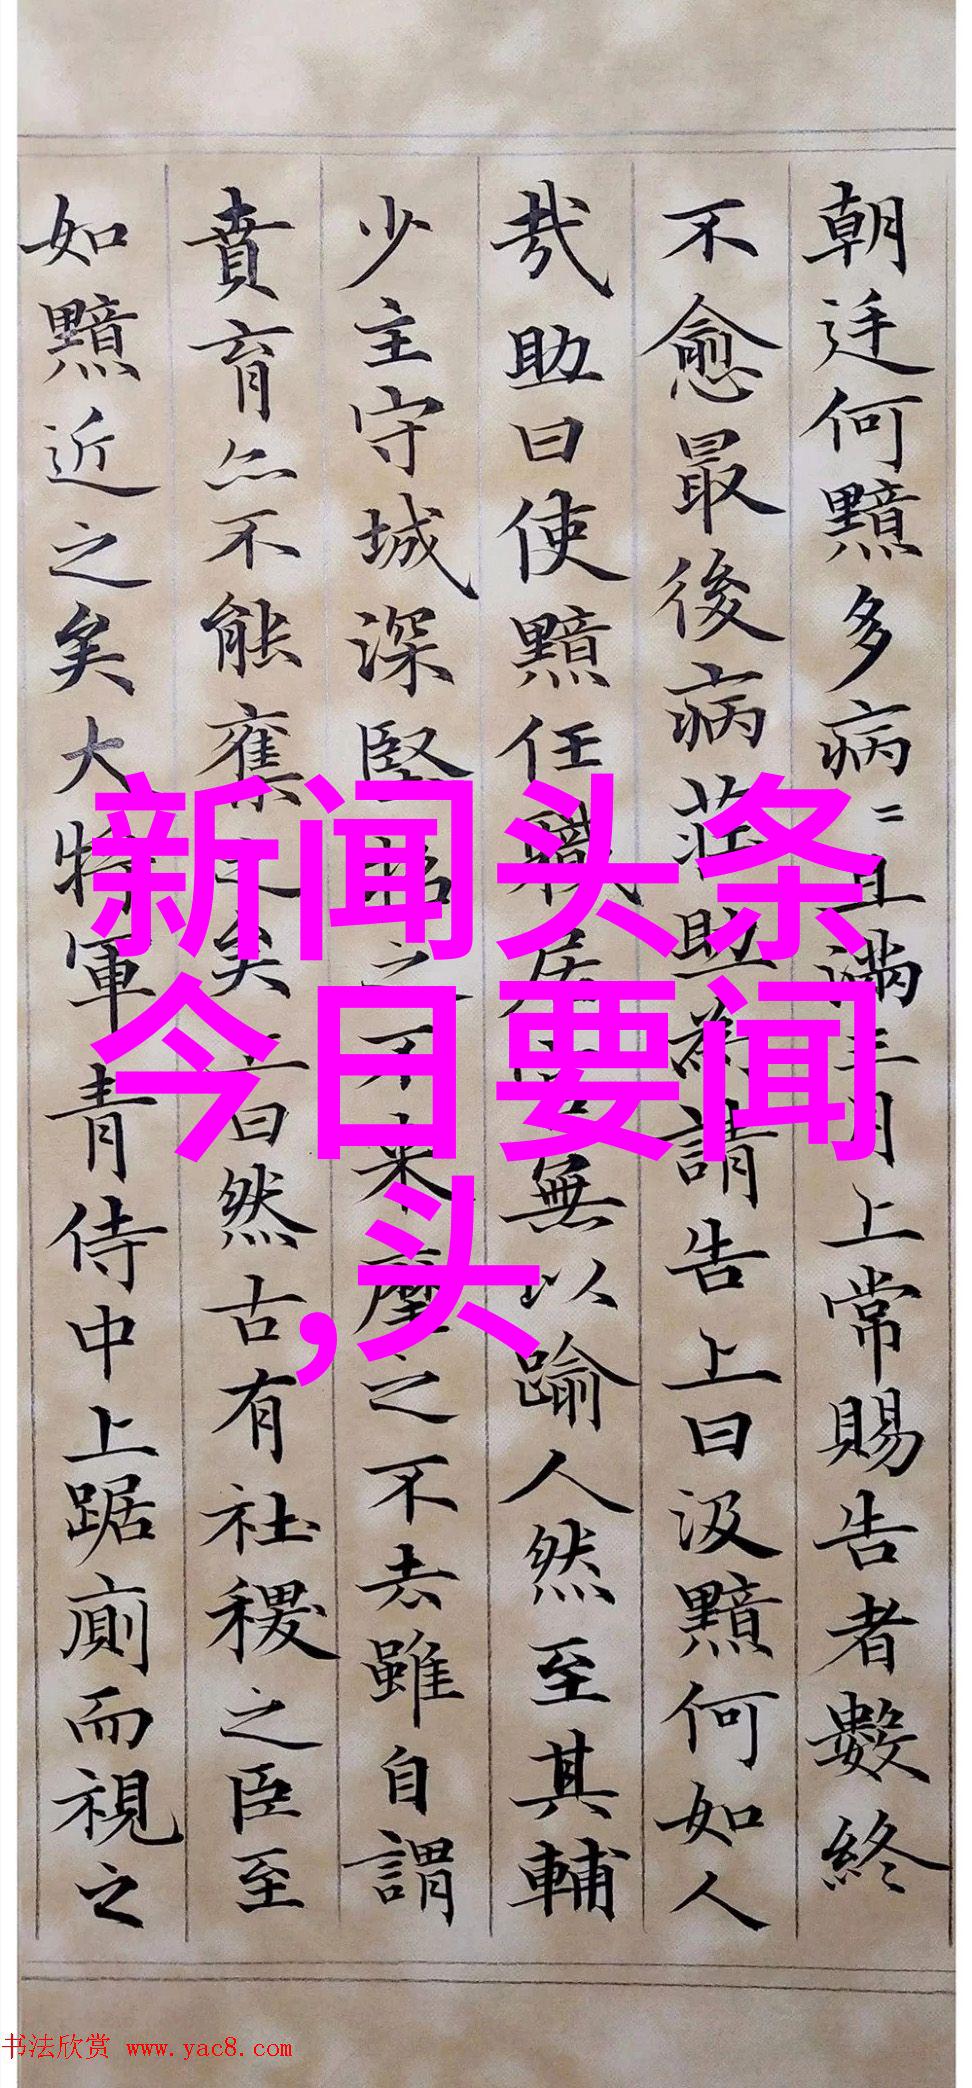 朝廷何黯多病〻且滿三月上常賜告者數終
不愈最後病莊助為請告上曰汲黯何如人
哉助曰使黯任職居無以踰人然至其輔
少主守城深堅招之不来麾之不去雖自謂
賁育亦不能奪之矣上曰然古有社稷之臣至
如黯近之矣大将軍青侍中上踞廁而視之
新闻头条
今日要闻
,头
书法欣赏 www.yac8.com